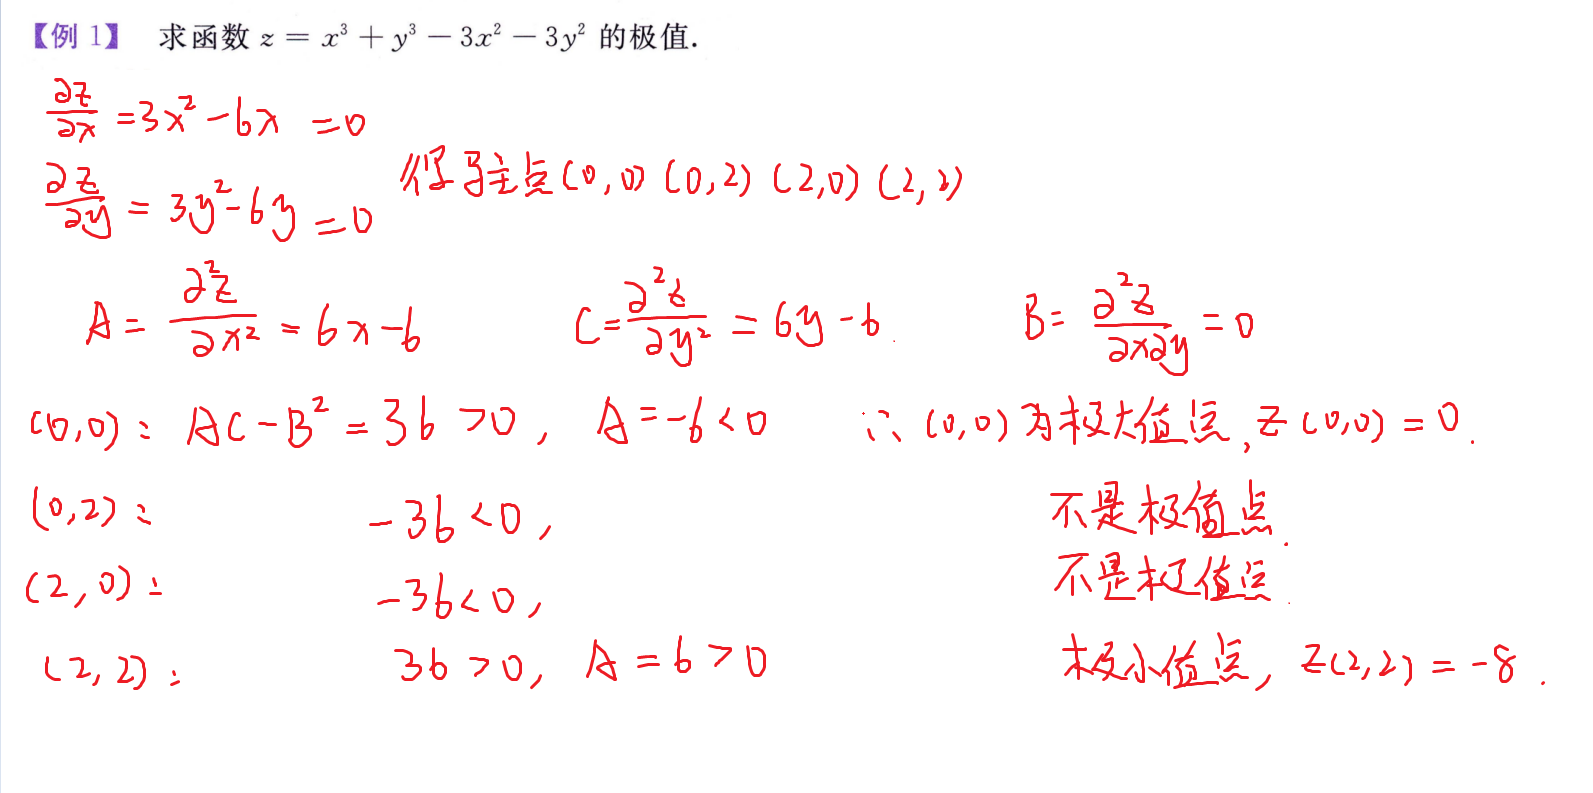 【例 1】 求函数 z = x³ + y³ − 3x² − 3y² 的极值.
∂z/∂x = 3x² − 6x = 0
∂z/∂y = 3y² − 6y = 0 得驻点 (0,0) (0,2) (2,0) (2,2)
A = ∂²z/∂x² = 6x − 6 C = ∂²z/∂y² = 6y − 6. B = ∂²z/∂x∂y = 0
(0,0): AC − B² = 36 > 0, A = −6 < 0 ∴ (0,0) 为极大值点, z(0,0) = 0.
(0,2): −36 < 0, 不是极值点.
(2,0): −36 < 0, 不是极值点.
(2,2): 36 > 0, A = 6 > 0 极小值点, z(2,2) = −8.